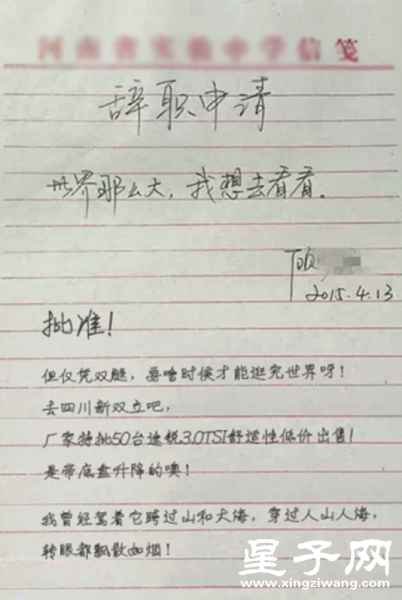 信笺
辞职申请
世界那么大，我想去看看。
顾
2015.4.13
批准！
但仅凭双腿，要啥时候才能逛完世界呀！
去四川新双立吧，
厂家特批50台途锐3.0TSI舒适性低价出售！
是带底盘升降的噢！
我曾经驾着它跨过山和大海，穿过人山人海，
转眼都飘散如烟！
星子网
www.xingziwang.com